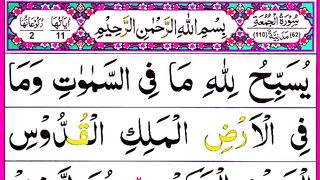 سُوۡرَةُ الۡجُمُعَةِ
(62) مَدَنِيَّةٌ (110)
بِسۡمِ اللّٰهِ الرَّحۡمٰنِ الرَّحِيۡمِ
اٰيَاتُهَا 11
رُكُوۡعَاتُهَا 2
يُسَبِّحُ لِلّٰهِ مَا فِى السَّمٰوٰتِ وَمَا
فِى الۡاَرۡضِ الۡمَلِكِ الۡقُدُّوۡسِ